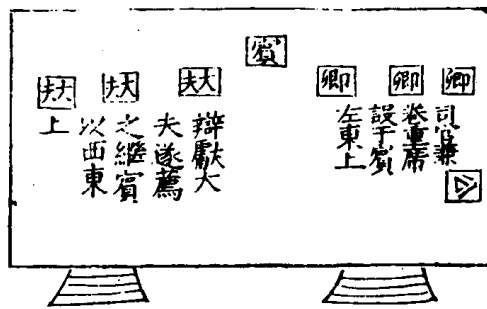 賓
卿
卿
卿
公
司宮兼
卷重席
設于賓
左東上
大夫
大夫
大夫
辯獻大
夫遂薦
之繼賓
以西東
上